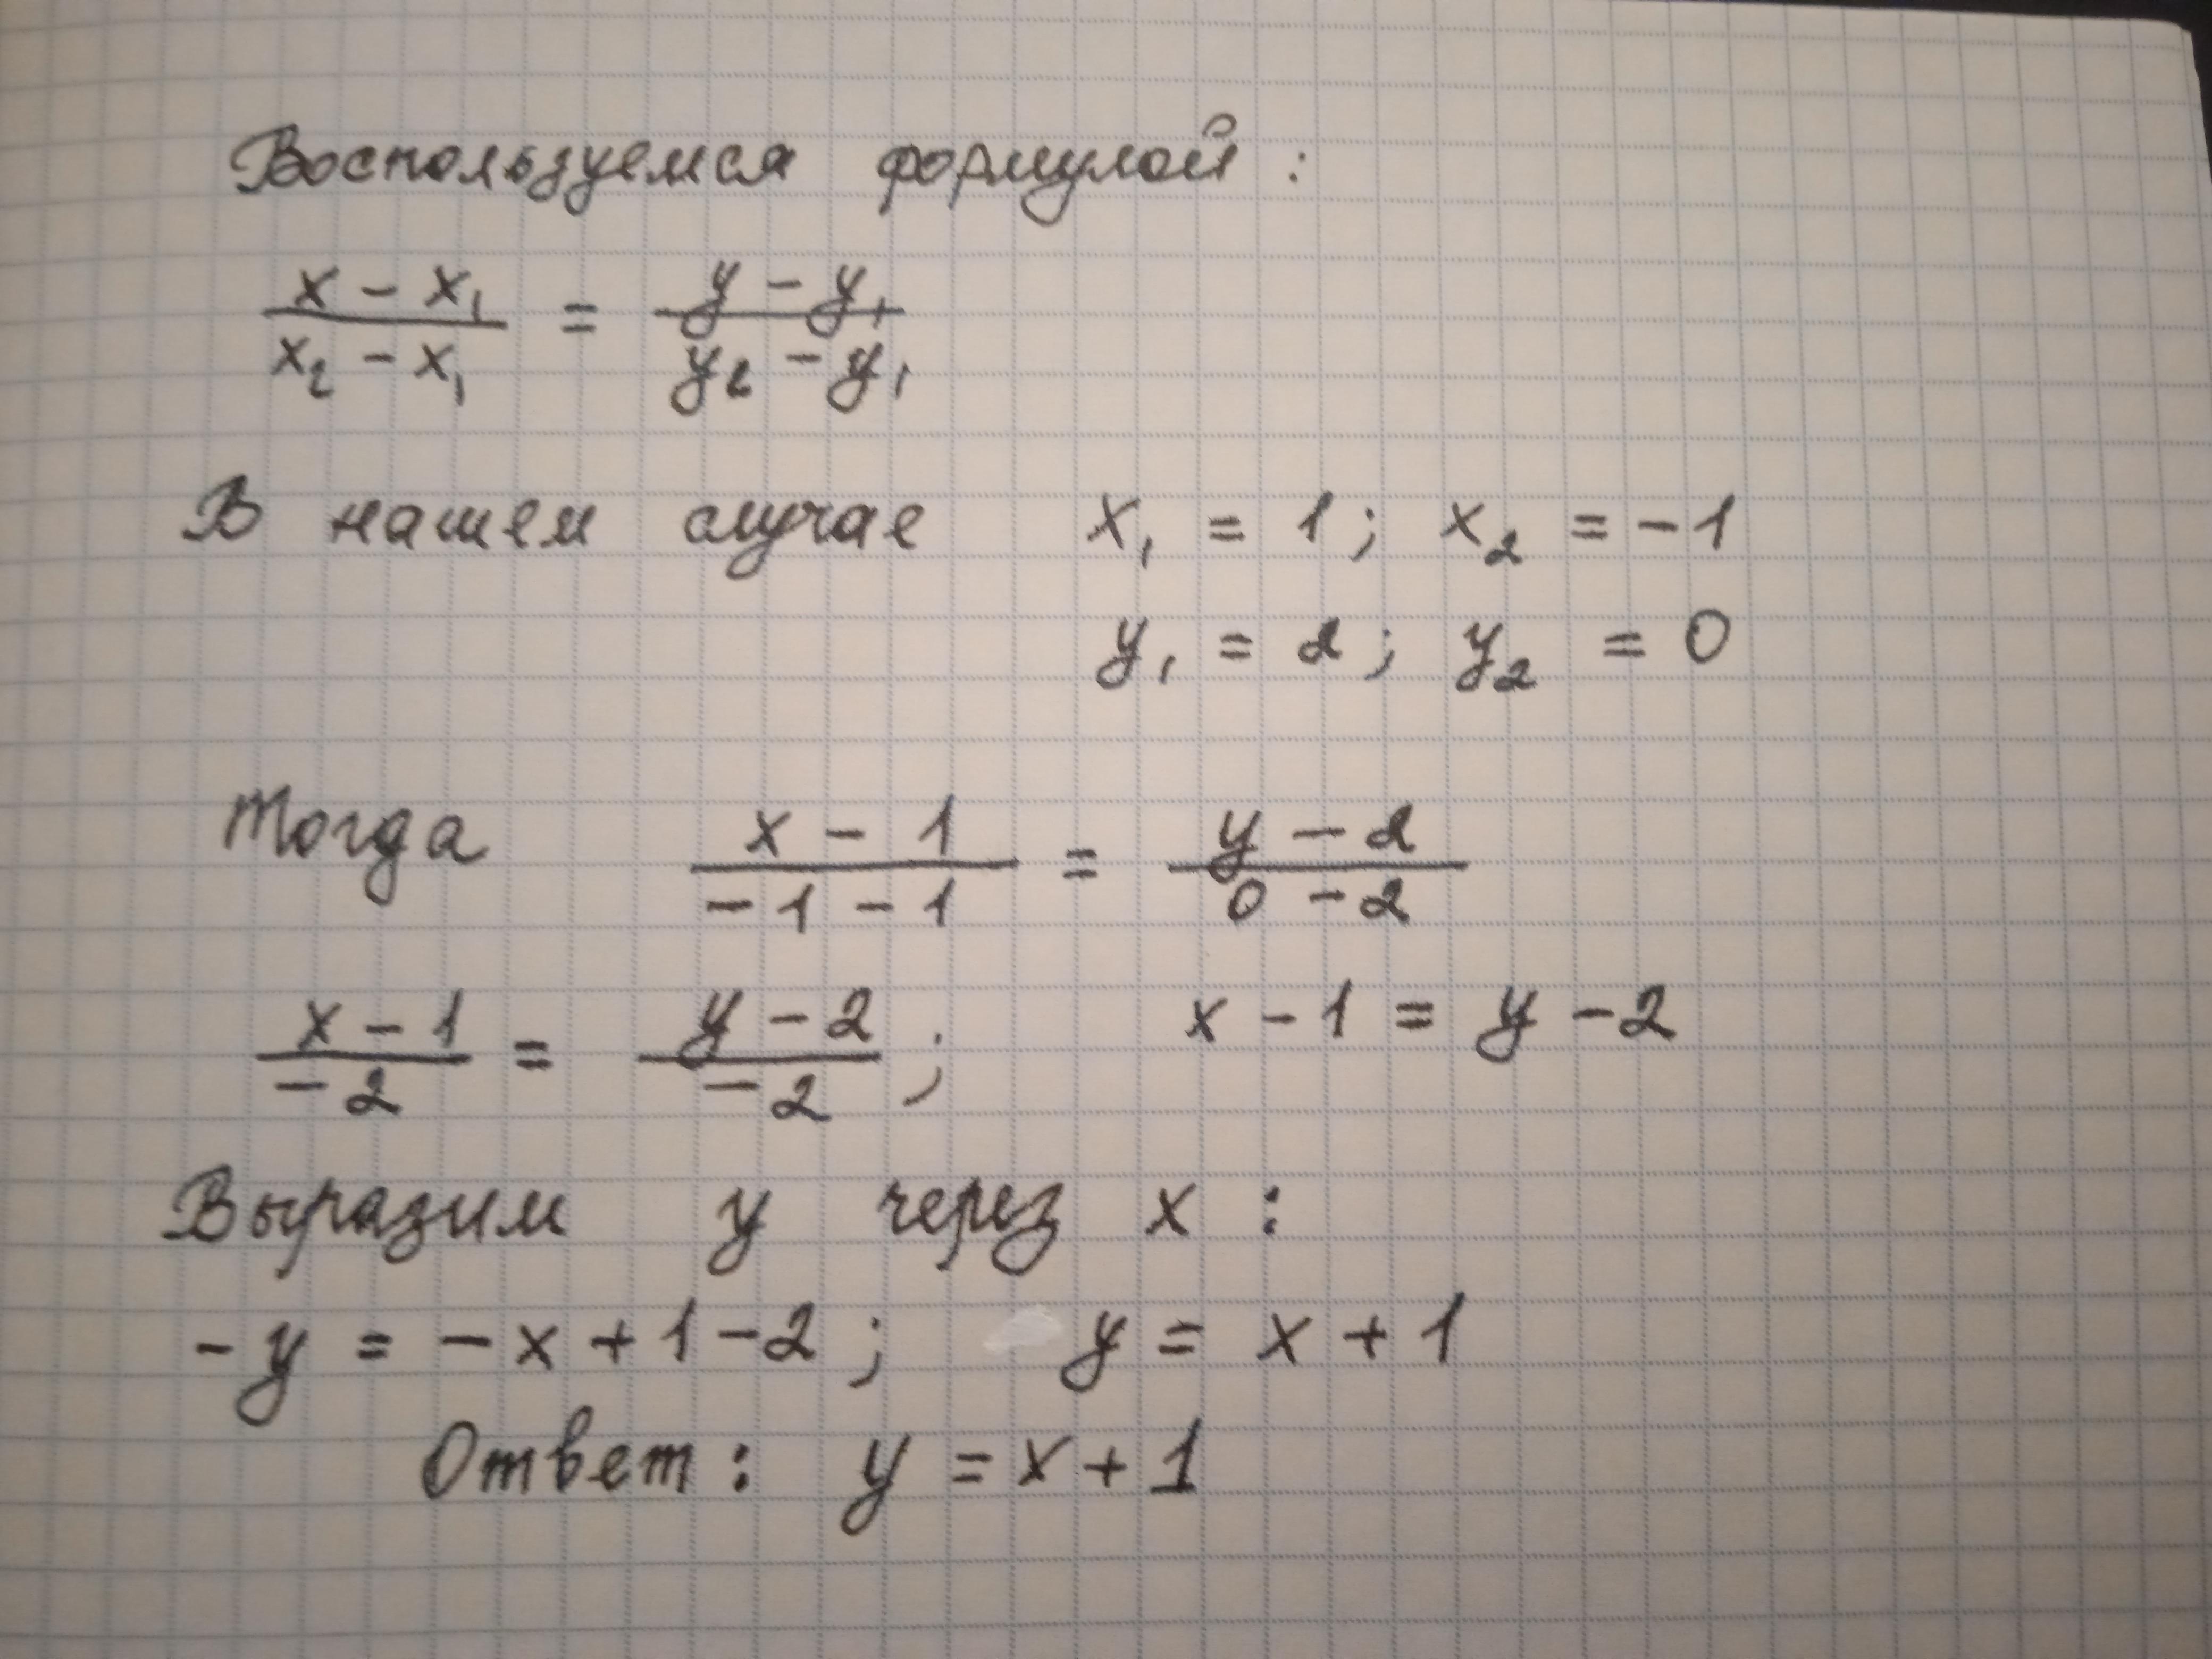 Воспользуемся формулой:
(x - x₁)/(x₂ - x₁) = (y - y₁)/(y₂ - y₁)
В нашем случае x₁ = 1; x₂ = -1
y₁ = 2; y₂ = 0
Тогда (x - 1)/(-1 - 1) = (y - 2)/(0 - 2)
(x - 1)/(-2) = (y - 2)/(-2); x - 1 = y - 2
Выразим y через x:
-y = -x + 1 - 2; y = x + 1
Ответ: y = x + 1